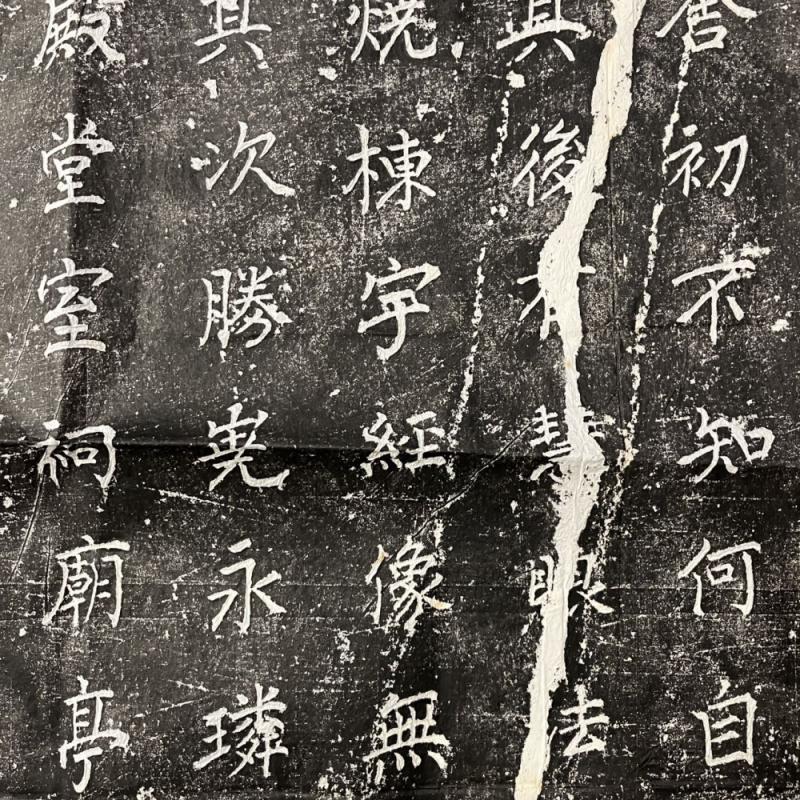 舍初不知何自
其後有慧眼法
燒棟宇經像無
其次勝永璘
殿堂室祠廟亭